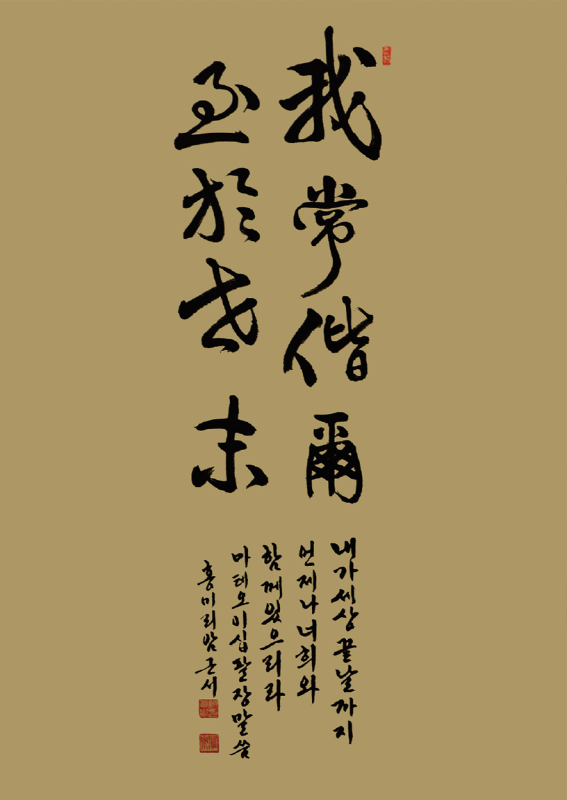 我常偕爾
至於世末
내가세상끝날까지
언제나너희와
함께있으리라
마태오이십팔장말씀
홍미리암근서